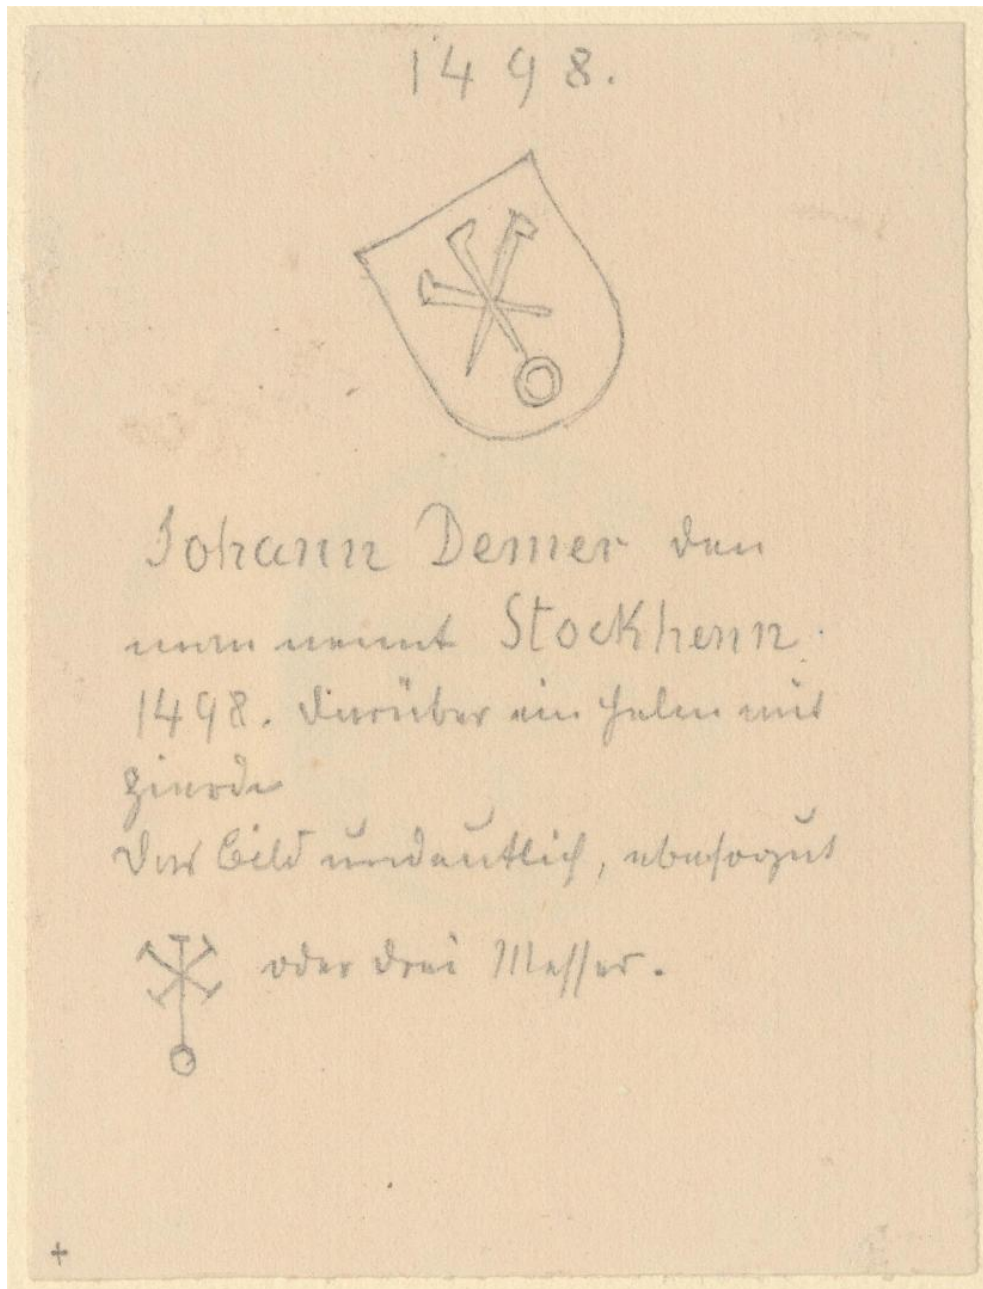 1498.
Johann Demer den
man nennt Stockhenn
1498. darüber ein Helm mit
Zierde
Das Bild undeutlich, ebensogut
oder drei Messer.